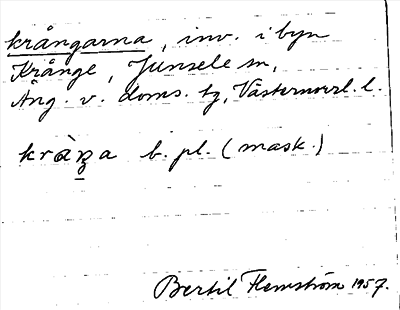 krångarna, inv. i byn
Krånge, Junsele sn,
Ång. v. doms. tg, Västernorrl. l.
kràŋa b. pl. (mask.)
Bertil Flemström 1957.